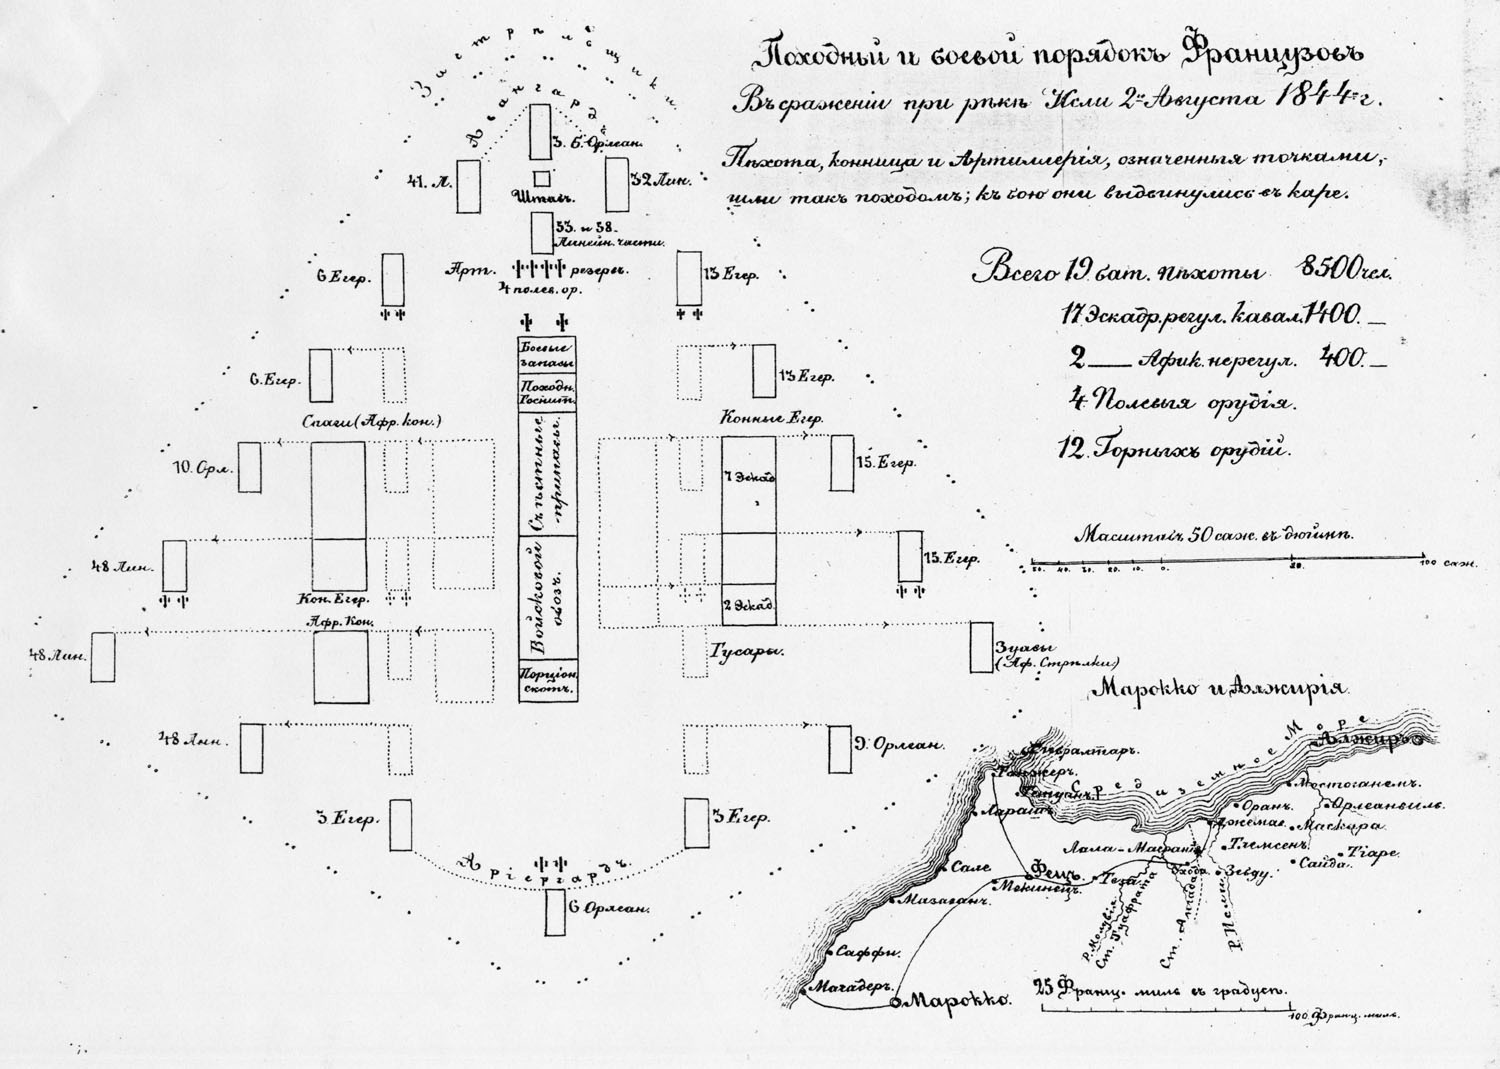 Походный и боевой порядокъ Французовъ
Въ сраженіи при рѣкѣ Исли 2го Августа 1844 г.
Пѣхота, конница и Артиллерія, означенныя точками,
шли такъ походомъ; къ бою они выдвинулись въ каре.
Всего 19 бат. пѣхоты 8500 чел.
17 Эскадр. регул. кавал. 1400. —
2 — Афик. нерегул. 400. —
4 Полевыя орудія.
12. Горныхъ орудій.
Масштабъ 50 саж. въ дюймѣ.
50. 40. 30. 20. 10. 0. 50. 100 саж.
Застрѣльщики
Авангардъ
3. б. Орлеан.
41. Л.
Штабъ.
32 Лин.
53. и 58.
Линейн. части.
6 Егер.
Арт. резервъ.
4 полев. ор.
13 Егер.
Боевые
запасы
6. Егер.
Походн.
Госпит.
13 Егер.
Спаги (Афр. кон.)
Конные Егер.
10. Орл.
Съѣстные
-припасы.
7 Эскад
15. Егер.
48 Лин.
Войсковой
обозъ.
15. Егер.
Кон. Егер.
2 Эскад.
Афр. Кон.
48 Лин.
Гусары.
Зуавы
(Аф. Стрѣлки)
Порціон.
скотъ.
48 Лин.
9. Орлеан.
3 Егер.
3 Егер.
Аріергардъ.
6 Орлеан.
Марокко и Алжирія.
Средиземное Море
Гибралтаръ.
Алжиръ
Танжеръ.
Тетуанъ.
Лараш
Мостоганемъ.
Оранъ.
Орлеанвиль.
Джемаа.
Маскара.
Лала-Магранія
Тлемсенъ.
Тіаре.
Саида.
Сале
Фецъ.
Мекинецъ.
Теза
Ухода.
Зебду.
Мазаганъ.
Р. Молувія
Ст. Гуафрата
Ст. Ангада
Р. Исли
Саффи.
Могадеръ.
Марокко.
25 Франц. миль въ градусѣ.
100 Франц. миль.